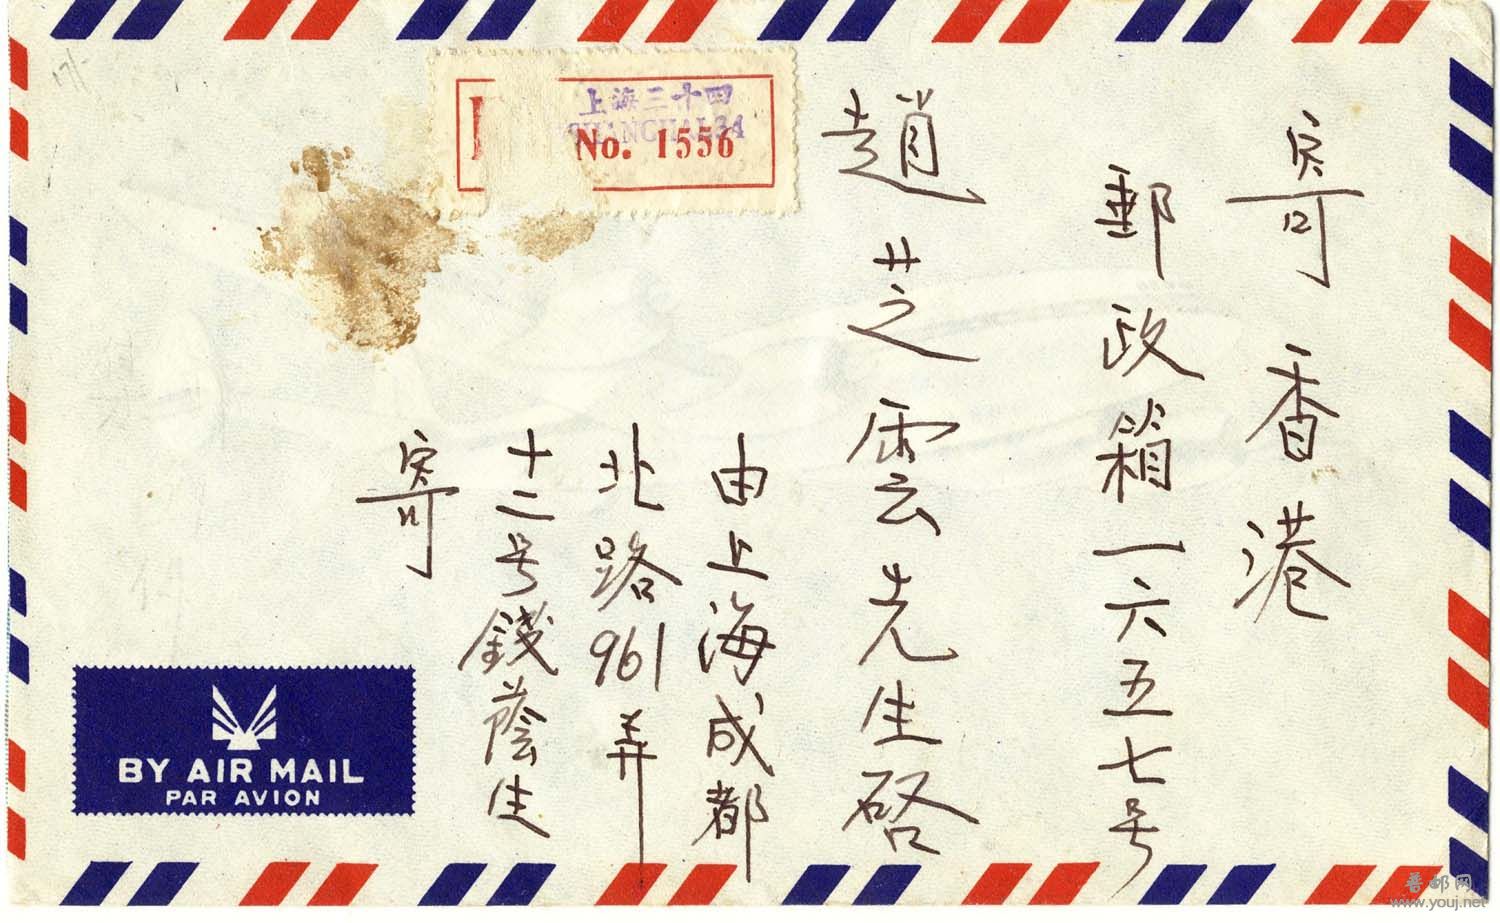 寄香港
郵政箱一六五七号
趙芝雲先生啓
由上海成都
北路961弄
十二号錢蔭生
寄
上海三十四
SHANGHAI 34
No. 1556
BY AIR MAIL
PAR AVION
普邮网
www.youj.net